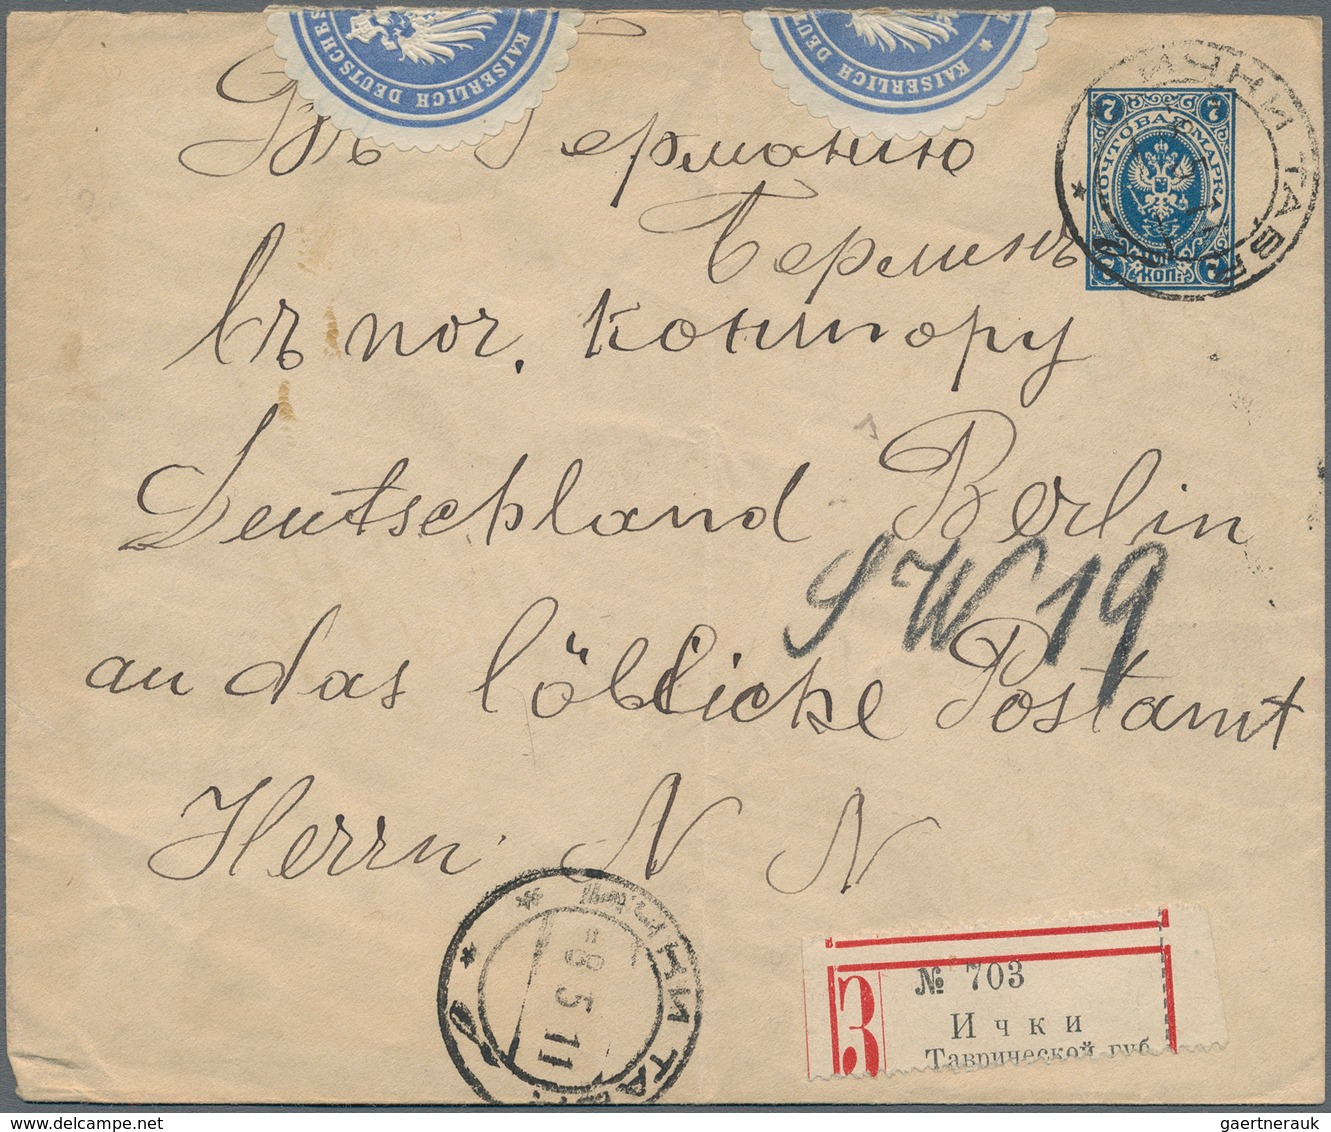 KAISERLICH DEUTSCHES
KAISERLICH DEU
Въ Германію
Берлинъ
въ поч. контору
Deutschland Berlin
SW 19
an das löbliche Postamt
Herrn N N
7 7
ПОЧТОВАЯ МАРКА
7 КОП. 7
ИЧКИ ТАВР.
ИЧКИ ТАВР.
-8 5 11
З
№ 703
Ички
Таврической губ.
gaertnerauk